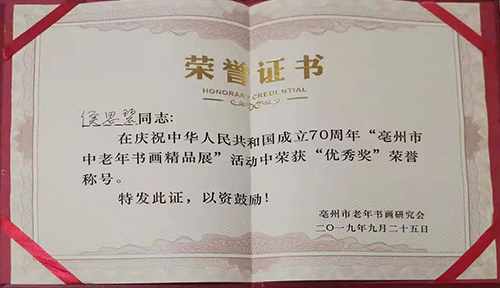 荣誉证书
HONORARY CREDENTIAL
侯思琴同志:
在庆祝中华人民共和国成立70周年“亳州市
中老年书画精品展”活动中荣获“优秀奖”荣誉
称号。
特发此证,以资鼓励!
亳州市老年书画研究会
二〇一九年九月二十五日